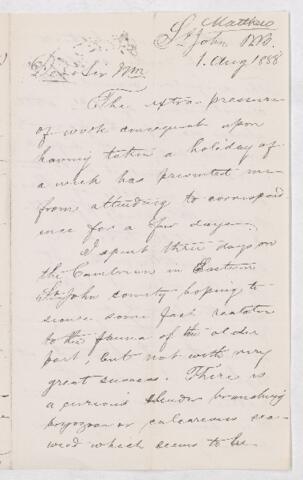 Matthew
St John N.B.
1. Aug 1888
Dear Sir Wm
The extra pressure
of work consequent upon
having taken a holiday of
a week has prevented me
from attending to correspond
ence for a few days.
I spent three days on
the Cambrian in Eastern
St John county hoping to
secure some fact relative
to the fauna of the older
part, but not with very
great success. There is
a curious slender branching
bryozoan or calcareous sea
weed which seems to be